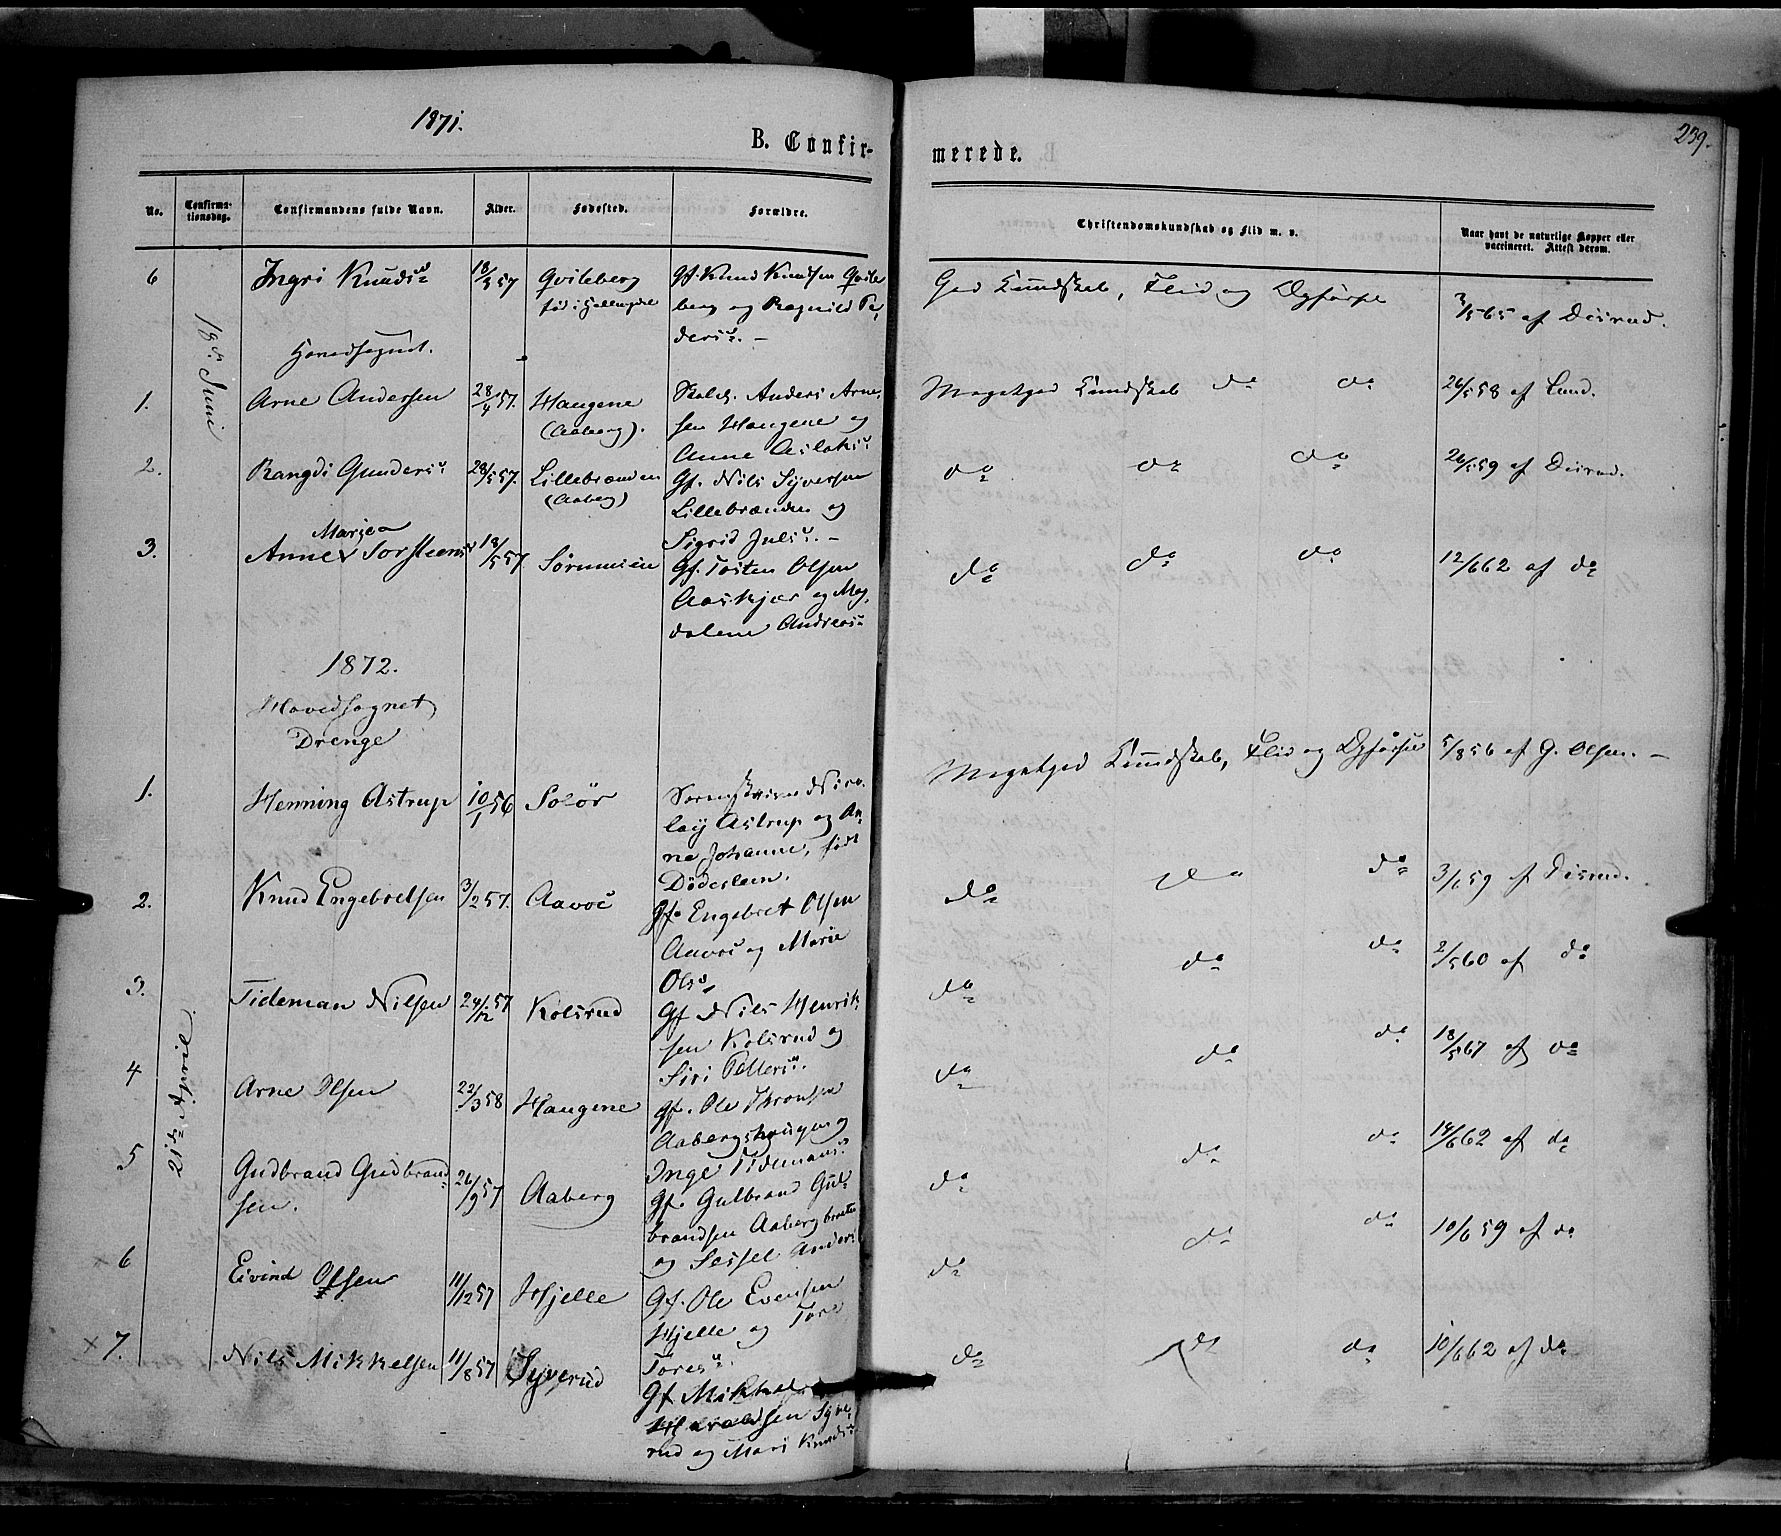 1871.
B. Confir-
merede.
239.
No.
Confirma-
tionsdag.
Confirmandens fulde Navn.
Alder.
Fødested.
Forældre.
Christendomskundskab og Flid m. v.
Naar havt de naturlige Kopper eller
vaccineret. Attest derom.
6 Ingri Knudsd 18/3 57 Qvileberg Gf. Knud Knudsen Qvile
fød i Hallingdal berg og Ragnild Pe,
dersd. –
God Kundskab, Flid og Opførsel 3/5 65 af Disrud.
18de Juni
Hovedsognet.
1. Arne Andersen 28/4 57. Haugene Anders Arne,
(Aaberg). sen Haugene og
Anne Aslaksd
Megetgod Kundskab do do 26/5 58 af Lund.
2. Rangdi Gundersd 28/5 57. Lillebrænden Gf. Nils Syversen
(Aaberg) Lillebrænden og
Sigrid Julsd. –
do do do 26/5 59 af Disrud.
Marie
3. Anne Torstensd 18/5 57 Sørumeien Gf. Tosten Olsen
Aaskjær og Mag,
dalene Andreasd
do do do 12/6 62 af do
1872.
Hovedsognet
Drenge
1. Henning Astrup 10/1 56 Solør Sorenskriver Nico,
lay Astrup og An,
ne Johanne, født
Döderlein.
Megetgod Kundskab, Flid og Opførsel 5/8 56 af G. Olsen. –
2. Knud Engebretsen 3/2 57. Aavoe Gf. Engebret Olsen
Aavoe og Marie
Olsd,
do do do 3/6 59 af Disrud.
3. Tideman Nilsen 24/12 57 Kolsrud Gf Nils Henrik
sen Kolsrud og
Siri Pettersd.
do do do 2/5 60 af do
21de April
4 Arne Olsen 22/3 58 Haugene Gf. Ole Thronsen
Aabergshaugen og
Inge Tidemansd
do do do 18/5 67 af do
5 Gudbrand Gudbrand 26/9 57 Aaberg Gf. Gulbrand Gul-
sen. brandsen Aabergbraaten
og Sessel Andersd
do do do 14/6 62 af do
x 6 Eivind Olsen 11/12 57 Hjelle Gf. Ole Evensen
Hjelle og Tore
Toresd.
do do do 10/6 59 af do
x 7. Nils Mikkelsen 11/8 57 Syverud Gf Mikkel
Haraldsen Syve,
rud og Mari Knudsd
do do do 10/6 62 af do